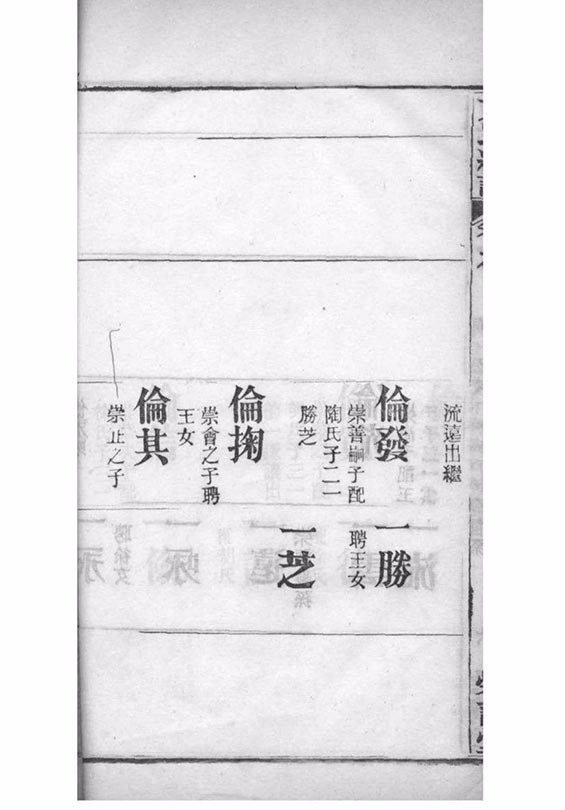 流遠出繼
倫發
崇善嗣子配
陶氏子二一
勝芝
一勝
聘王女
一芝
倫掬
崇會之子聘
王女
倫其
崇正之子